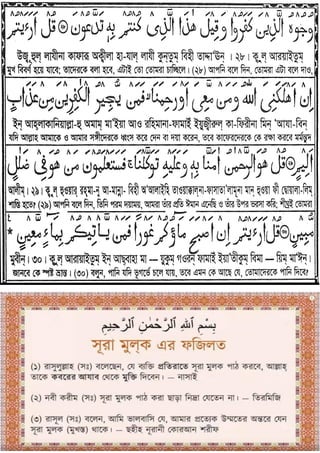 وُجُوْهُ الَّذِيْنَ كَفَرُوْا وَقِيْلَ هٰذَا الَّذِيْ كُنْتُمْ بِهٖ تَدَّعُوْنَ ۝ قُلْ اَرَءَيْتُمْ
উজূ হুল্ লাযীনা কাফারূ অক্বীলা হা-যাল্ লাযী কুন্‌তুম্ বিহী তাদ্দা‘ঊন্ । ২৮। কু ল্ আরায়াইতুম্
মুখ বিবর্ণ হয়ে যাবে; তাদেরকে বলা হবে, এটাই তো তোমরা চাচ্ছিলে। (২৮) আপনি বলে দিন, তোমরা এটা বলে দাও,
اِنْ اَهْلَكَنِيَ اللهُ وَمَنْ مَّعِيَ اَوْ رَحِمَنَا فَمَنْ يُّجِيْرُ الْكٰفِرِيْنَ مِنْ عَذَابٍ
ইন্ আহ্‌লাকানিয়াল্লা-হু অমাম্ মা‘ইয়া আও রহিমানা-ফামাইঁ ইয়ুজ্বীরুল্ কা-ফিরীনা মিন্ ‘আযা-বিন্
যদি আল্লাহ আমাকে ও আমার সঙ্গীদেরকে ধ্বংস করে দেন বা দয়া করেন, তবে কাফেরদেরকে কে রক্ষা করবে মর্মন্তুদ
اَلِيْمٍ ۝ قُلْ هُوَ الرَّحْمٰنُ اٰمَنَّا بِهٖ وَعَلَيْهِ تَوَكَّلْنَا ۚ فَسَتَعْلَمُوْنَ مَنْ هُوَ فِيْ ضَلٰلٍ
আলীম্। ২৯। কু ল্ হুওয়ার্ রহ্‌মা-নু আ-মান্না- বিহী অ‘আলাইহি তাওয়াক্কাল্‌না-ফাসাতা‘লামূনা মান্ হুওয়া ফী দ্বোয়ালা-লিম্
শাস্তি হতে? (২৯) আপনি বলে দিন, তিনি পরম দয়াময়, আমরা তাঁর প্রতি ঈমান এনেছি ও তাঁর উপর ভরসা করি; শীঘ্রই তোমরা
مُّبِيْنٍ ۝ قُلْ اَرَءَيْتُمْ اِنْ اَصْبَحَ مَآؤُكُمْ غَوْرًا فَمَنْ يَّاْتِيْكُمْ بِمَآءٍ مَّعِيْنٍ *
মুবীন্। ৩০। কু ল্ আরায়াইতুম্ ইন্ আছ্‌বাহা মা — য়ুকুম্ গওরন্ ফামাইঁ ইয়া’তীকুম্ বিমা — য়িম্ মা‘ঈন্।
জানবে কে স্পষ্ট ভ্রান্ত। (৩০) বলুন, পানি যদি ভূগর্ভে চলে যায়, তবে এমন কে আছে যে, তোমাদেরকে পানি দিবে?
بِسْمِ اللهِ الرَّحْمٰنِ الرَّحِيْمِ
সূরা মুল্‌ক এর ফজিলত
(১) রাসুলুল্লাহ (সঃ) বলেছেন, যে ব্যক্তি প্রতিরাতে সূরা মুলক পাঠ করবে, আল্লাহ্
তাকে কবরের আযাব থেকে মুক্তি দিবেন। – নাসাই
(২) নবী করীম (সঃ) সূরা মুলক পাঠ করা ছাড়া নিদ্রা যেতেন না। – তিরমিজি
(৩) রাসূল (সঃ) বলেন, আমি ভালবাসি যে, আমার প্রত্যেক উম্মতের অন্তরে যেন
সূরা মুলক (মুখস্ত) থাকে। – ছহীহ নূরানী কোরআন শরীফ